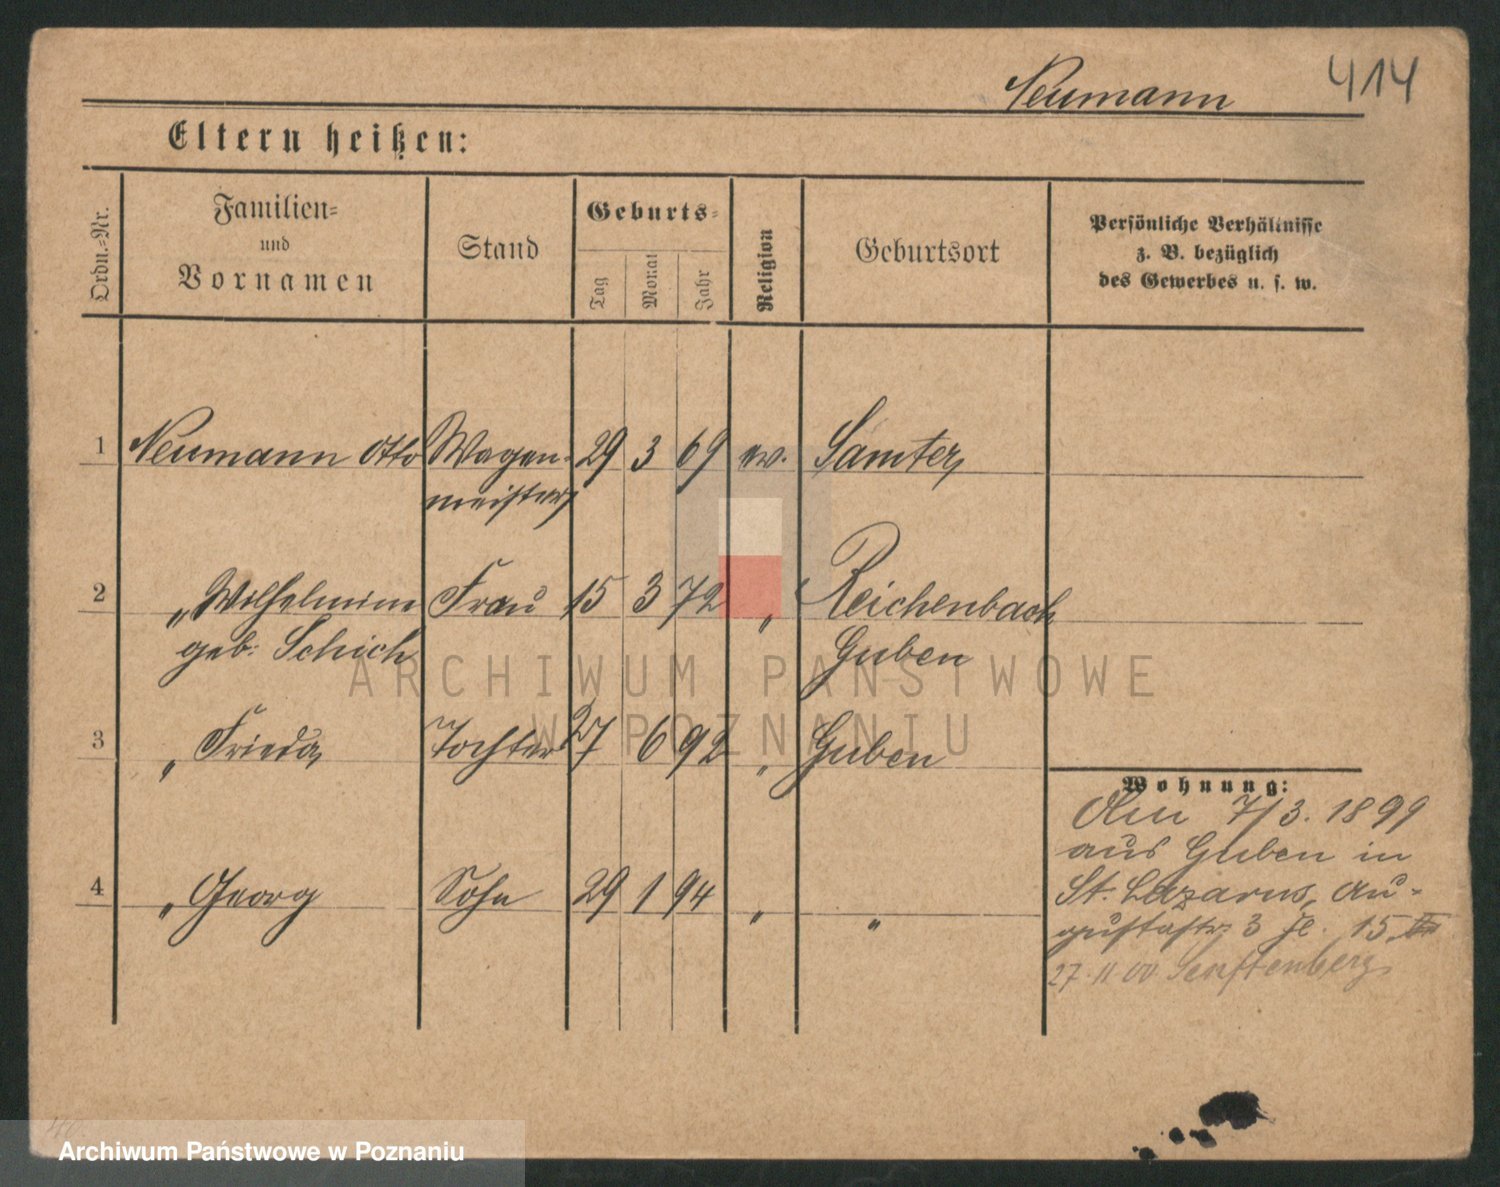 Neumann 414
Eltern heißen:
Ordn.-Nr.
Familien-
und
Vornamen
Stand
Geburts-
Tag
Monat
Jahr
Religion
Geburtsort
Persönliche Verhältnisse
z. B. bezüglich
des Gewerbes u. s. w.
1 Neumann Otto Wagen- 29 3 69 ev. Samter
meister
2 „ Wilhelmine Frau 15 3 72 „ Reichenbach
geb: Schich Guben
3 „ Frieda Tochter 27 6 92 „ Guben
4 „ Georg Sohn 29 1 94 „ „
Wohnung:
Am 7/3. 1899
aus Guben in
St. Lazarus, Au-
gustastr 3 15
27. 11 00 Senftenberg
ARCHIWUM PAŃSTWOWE
W POZNANIU
Archiwum Państwowe w Poznaniu